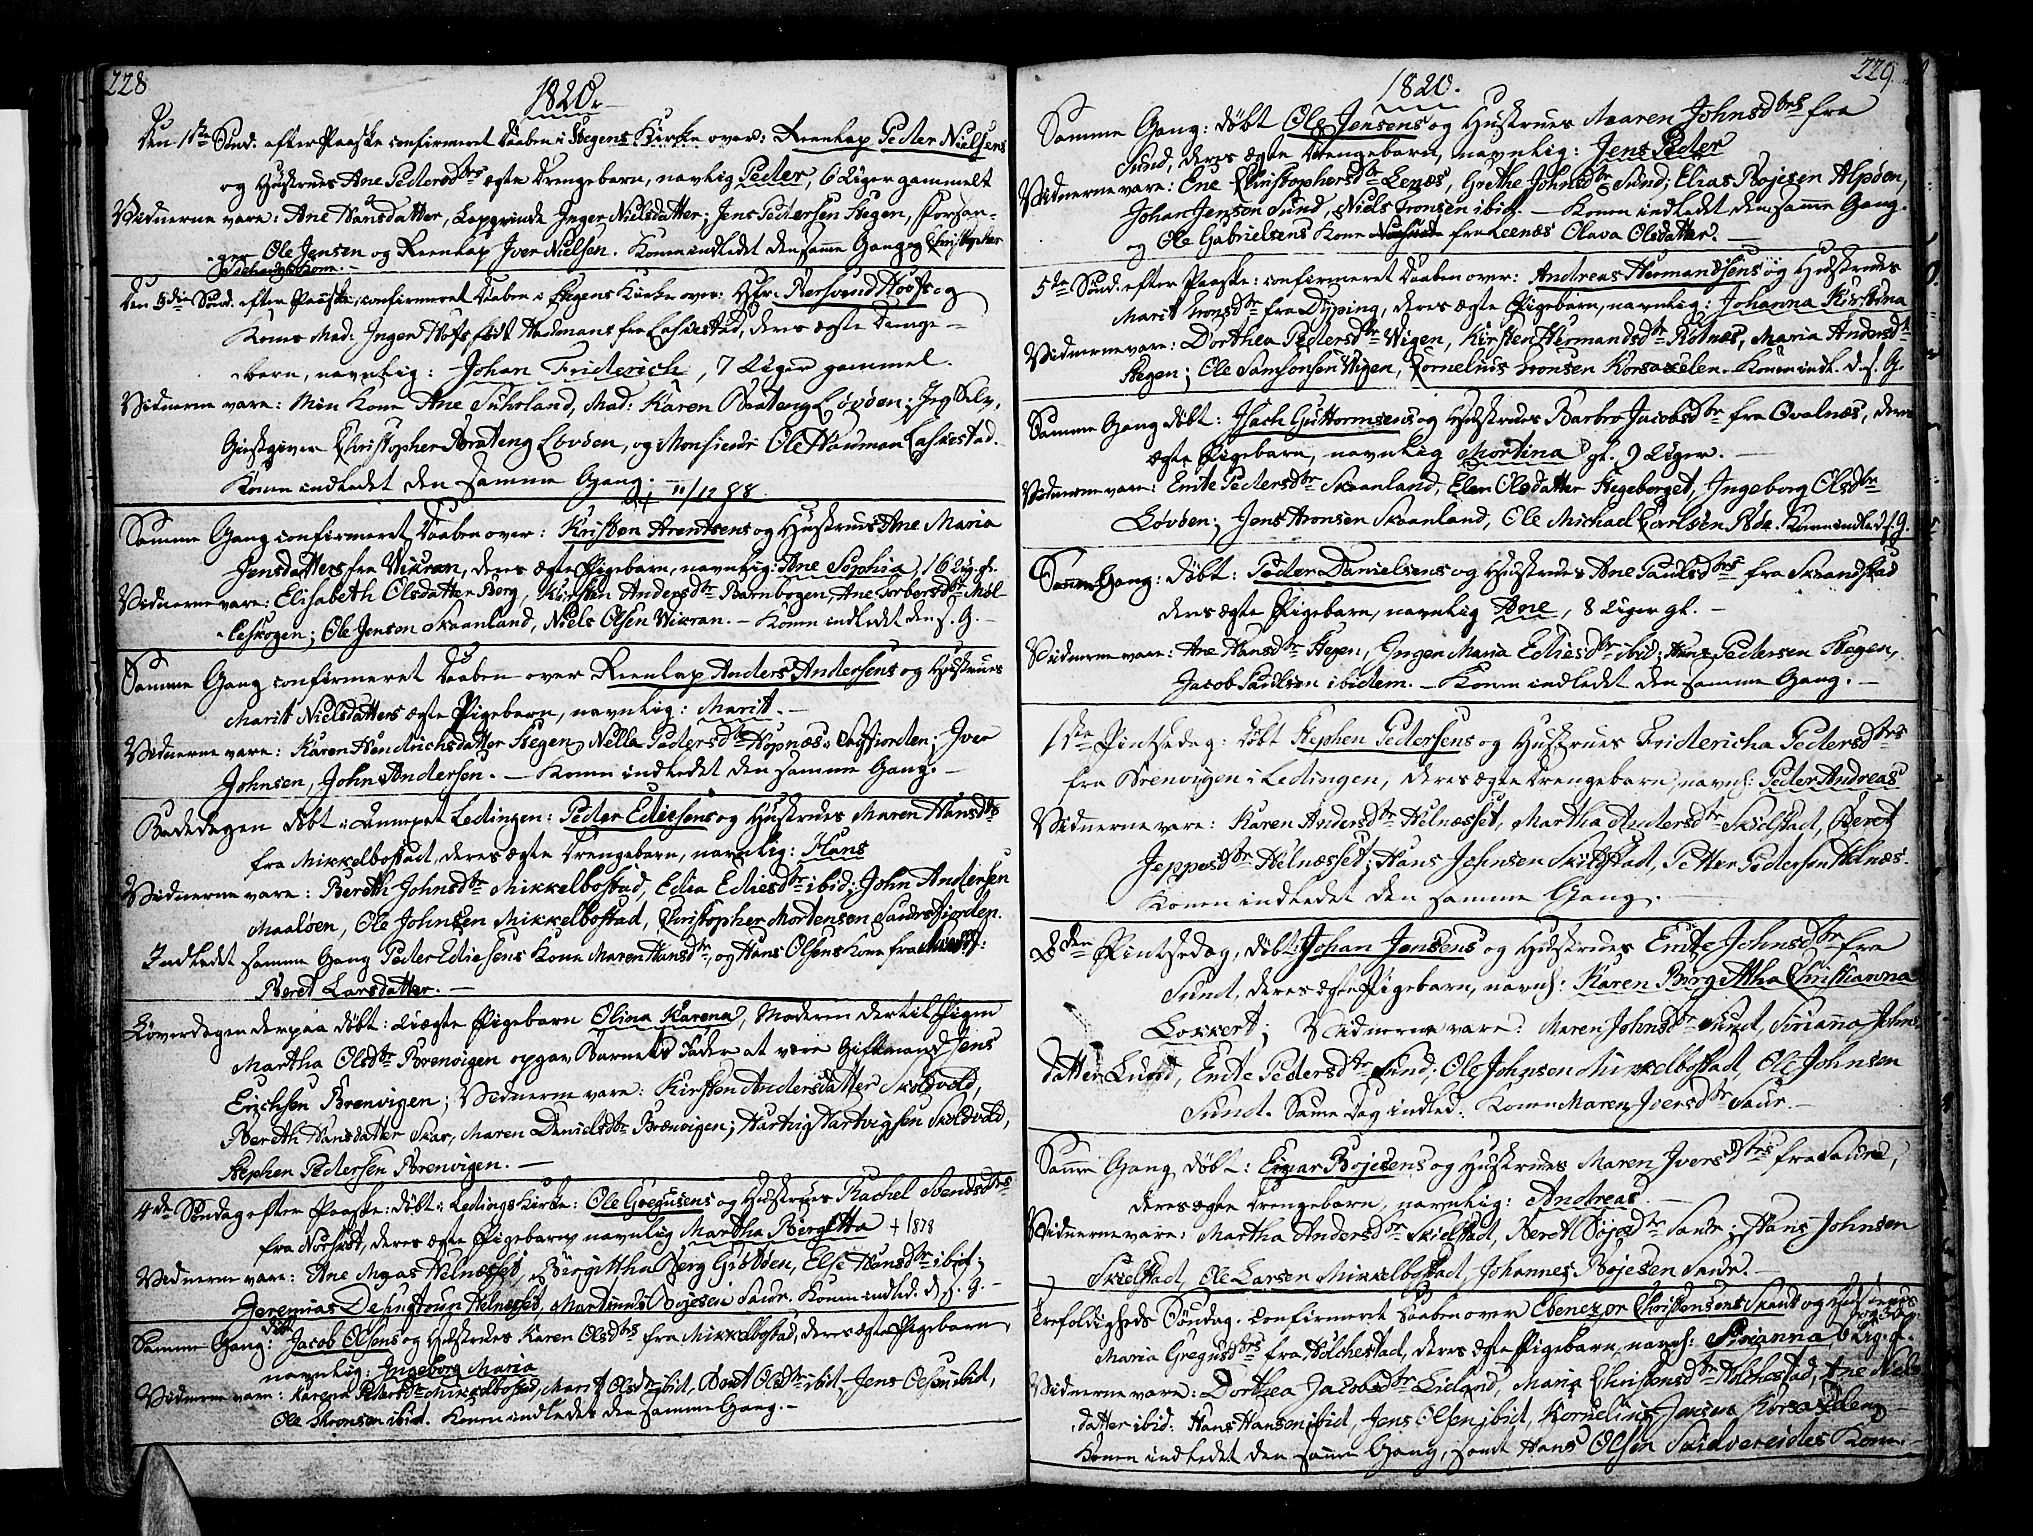 228
1820.
Den 1ste Sønd. efter Paaske confirmeret Daaben i Stegens Kirke over: Reenlap Peder Nielsens
og Hustrues Ane Pedersdtrs ægte Drengebarn, navnlig Peder, 6 Uger gammelt
Vidnerne vare: Ane Hansdatter, Lapqvinde Inger Nielsdatter; Jens Pedersen Stegen, Forsan-
ger Ole Jensen og Reenlap Iver Nielsen. Konen indledet den samme Gang og Christopher
Kone.
Den Sønd. efter Paaske, confirmeret Daaben i Stegens Kirke over: Hr. Hofs og
Kones Mad. Inger Hofs født fra Laskestad, deres ægte Drenge-
barn, navnlig: Johan Friderich, 7 Uger gammel.
Vidnerne vare: Min Kone Ane Suhrland, Mad: Karen Brateng Løvøen; Jeg Selv,
Giestgiver Christopher Brateng Løvøen, og Monsieur Ole Hauman Laskestad.
Konen indledet den samme Gang. + 11/12 88
Samme Gang confirmeret Daaben over: Kristen Arentsens og Hustrues Ane Maria
Jensdatters fra Vikran, deres ægte Pigebarn, navnlig: Ane Sophia, 16 Ug. g.
Vidnerne vare: Elisabeth Olsdatter Berg, Kirsten Andersdtr Barnbogen, Ane Torbersdtr Møl-
leskogen; Ole Jensen Skaanland, Niels Olsen Vikran. – Konen indledet den s. G. –
Samme Gang confirmeret Daaben over Reenlap Anders Andersens og Hustrues
Marit Nielsdatters ægte Pigebarn, navnlig: Marit. –
Vidnerne vare: Karen Hendrichsdatter Stegen, Nella Pedersdtr Hopnæs i Sagfjorden; Iver
Johnsen, John Andersen. – Konen indledet den samme Gang. –
Bededagen døbt i Annexet Lødingen: Peder Ediesens og Hustrues Maren Hansdtrs
fra Mikkelbostad, deres ægte Drengebarn, navnlig: Hans
Vidnerne vare: Bereth Johnsdtr Mikkelbostad, Edia Ediesdtr ibid; John Andersen
Maaløen, Ole Johnsen Mikkelbostad, Christopher Mortensen Saursfjorden.
Indledet samme Gang Peder Ediesens Kone Maren Hansdtr, og Hans Olsens Kone fra
Beret Larsdatter. –
Løverdagen derpaa døbt: Uægte Pigebarn Olina Karena, Moderen dertil Pigen
Martha Olsdtr Brenvigen opgav Barnets Fader at være Giftmand Jens
Erichsen Brenvigen; Vidnerne vare: Kirsten Andersdatter Skoldvold,
Bereth Hansdatter Skar, Maren Danielsdtr Brenvigen; Hartvig Hartvigsen Skoldvold,
Stephen Pedersen Brenvigen. –
4de Søndag efter Paaske: døbt i Lødings Kirke: Ole Gregusens og Hustrues Rachel Svendsdtrs
fra Norskot, deres ægte Pigebarn navnlig Martha Bergitta + 1878
Vidnerne vare: Ane Helnæsset, Birgittha Berg Gisløen, Else Hansdtr ibid;
Jeremias Helnesset, Martinus Bojesen Saur. Konen indled. d. s. G. –
Samme Gang: døbt Jacob Olsens og Hustrues Karen Olsdtrs fra Mikkelbostad, deres ægte Pigebarn,
navnlig: Ingeborg Maria
Vidnerne vare: Karena Pedersdtr Mikkelbostad, Marit Olsdtr ibid, Beret Olsdtr ibid Jens Olsen ibid,
Ole Thronsen ibid. Konen indledet den samme Gang. –
229
1820.
Samme Gang: døbt Ole Jensens og Hustrues Maaren Johnsdtrs fra
Sund, deres ægte Drengebarn, navnlig: Jens Peder
Vidnerne vare: Ene Christophersdtr Lenæs, Grethe Johnsdtr Sund; Elias Bojesen Alpøen,
Johan Jensen Sund, Niels Tronsen ibid. – Konen indledet den samme Gang.
og Ole Gabrielsens Kone fra Leenæs Olava Olsdatter. –
5te Sønd. efter Paaske: confirmeret Daaben over: Andreas Hermandsens og Hustrues
Marit Tronsdtr fra Dyping, deres ægte Pigebarn, navnlig: Johanna Kirstina
Vidnerne vare: Dorthea Pedersdtr Vigen, Kirsten Hermandsdtr Rotnes, Maria Andersdtr
Stegen; Ole Samsonsen Vigen, Cornelius Tronsen Korsaxelen. Konen indl. d. s. G.
Samme Gang døbt: Isach Guttormsens og Hustrues Barbro Jacobsdtr fra Qvalnæs, deres
ægte Pigebarn, navnlig Mortina gl. 9 Uger. –
Vidnerne vare: Enite Pedersdtr Skaanland, Elen Olsdatter Hegeborget, Ingeborg Olsdtr
Løvøen; Jens Aronsen Skaanland, Ole Michael Carlsen Bøe. Konen indled. s. G.
Samme Gang: døbt: Peder Danielsens og Hustrues Ane Paulsdtrs fra Skaandstad
deres ægte Pigebarn, navnlig Ane, 8 Uger gl. –
Vidnerne vare: Ane Hansdtr Stegen, Inger Maria Ediesdtr ibid; Hans Pedersen Stegen,
Jacob Paulsen ibidem. – Konen indledet den samme Gang. –
1ste Pintsedag: døbt Stephen Pedersens og Hustrues Fridericha Pedersdtrs
fra Brenvigen i Lødingen, deres ægte Drengebarn, navnl: Peder Andreas
Vidnerne vare: Karen Andersdtr Helnæsset, Martha Andersdtr Skielstad, Beret
Jeppesdtr Helnæsset; Hans Johnsen Skielstad, Petter Pedersen Helnæs.
Konen indledet den samme Gang. –
2den Pintsedag, døbt: Johan Jensens og Hustrues Enite Johnsdtr fra
Sund, deres ægte Pigebarn, navnl: Karen Birgittha Christianna
Lokkert; Vidnerne vare: Maren Johnsdtr Sund, Sirianna Johns-
datter Lund, Enite Pedersdtr Sund; Ole Johnsen Mikkelbostad, Ole Johnsen
Sund. Samme Dag indled: Konen Maren Iversdtr Saur. –
Samme Gang døbt: Einar Bojesens og Hustrues Maren Iversdtrs fra Saur,
deres ægte Drengebarn, navnlig: Andreas. –
Vidnerne vare: Martha Andersdtr Skielstad, Beret Bojesdtr Saur; Hans Johnsen
Skielstad, Ole Larsen Mikkelbostad, Johannes Bojesen Saur. –
Trefoldigheds Søndag. confirmeret Daaben over Ebenezer Christensens og Hustrues
Maria Gregusdtrs fra Holchestad, deres ægte Pigebarn, navnl: Sirianna, 6 Ug. g.
Vidnerne vare: Dorthea Jacobsdtr Leland, Maria Christensdtr Holchestad, Ane Niels-
datter ibid: Hans Hansen ibid, Jens Olsen ibid, Kornelius Korsaxelen
Konen indledet den samme Gang, samt Hans Olsen Skidvereides Kone. –